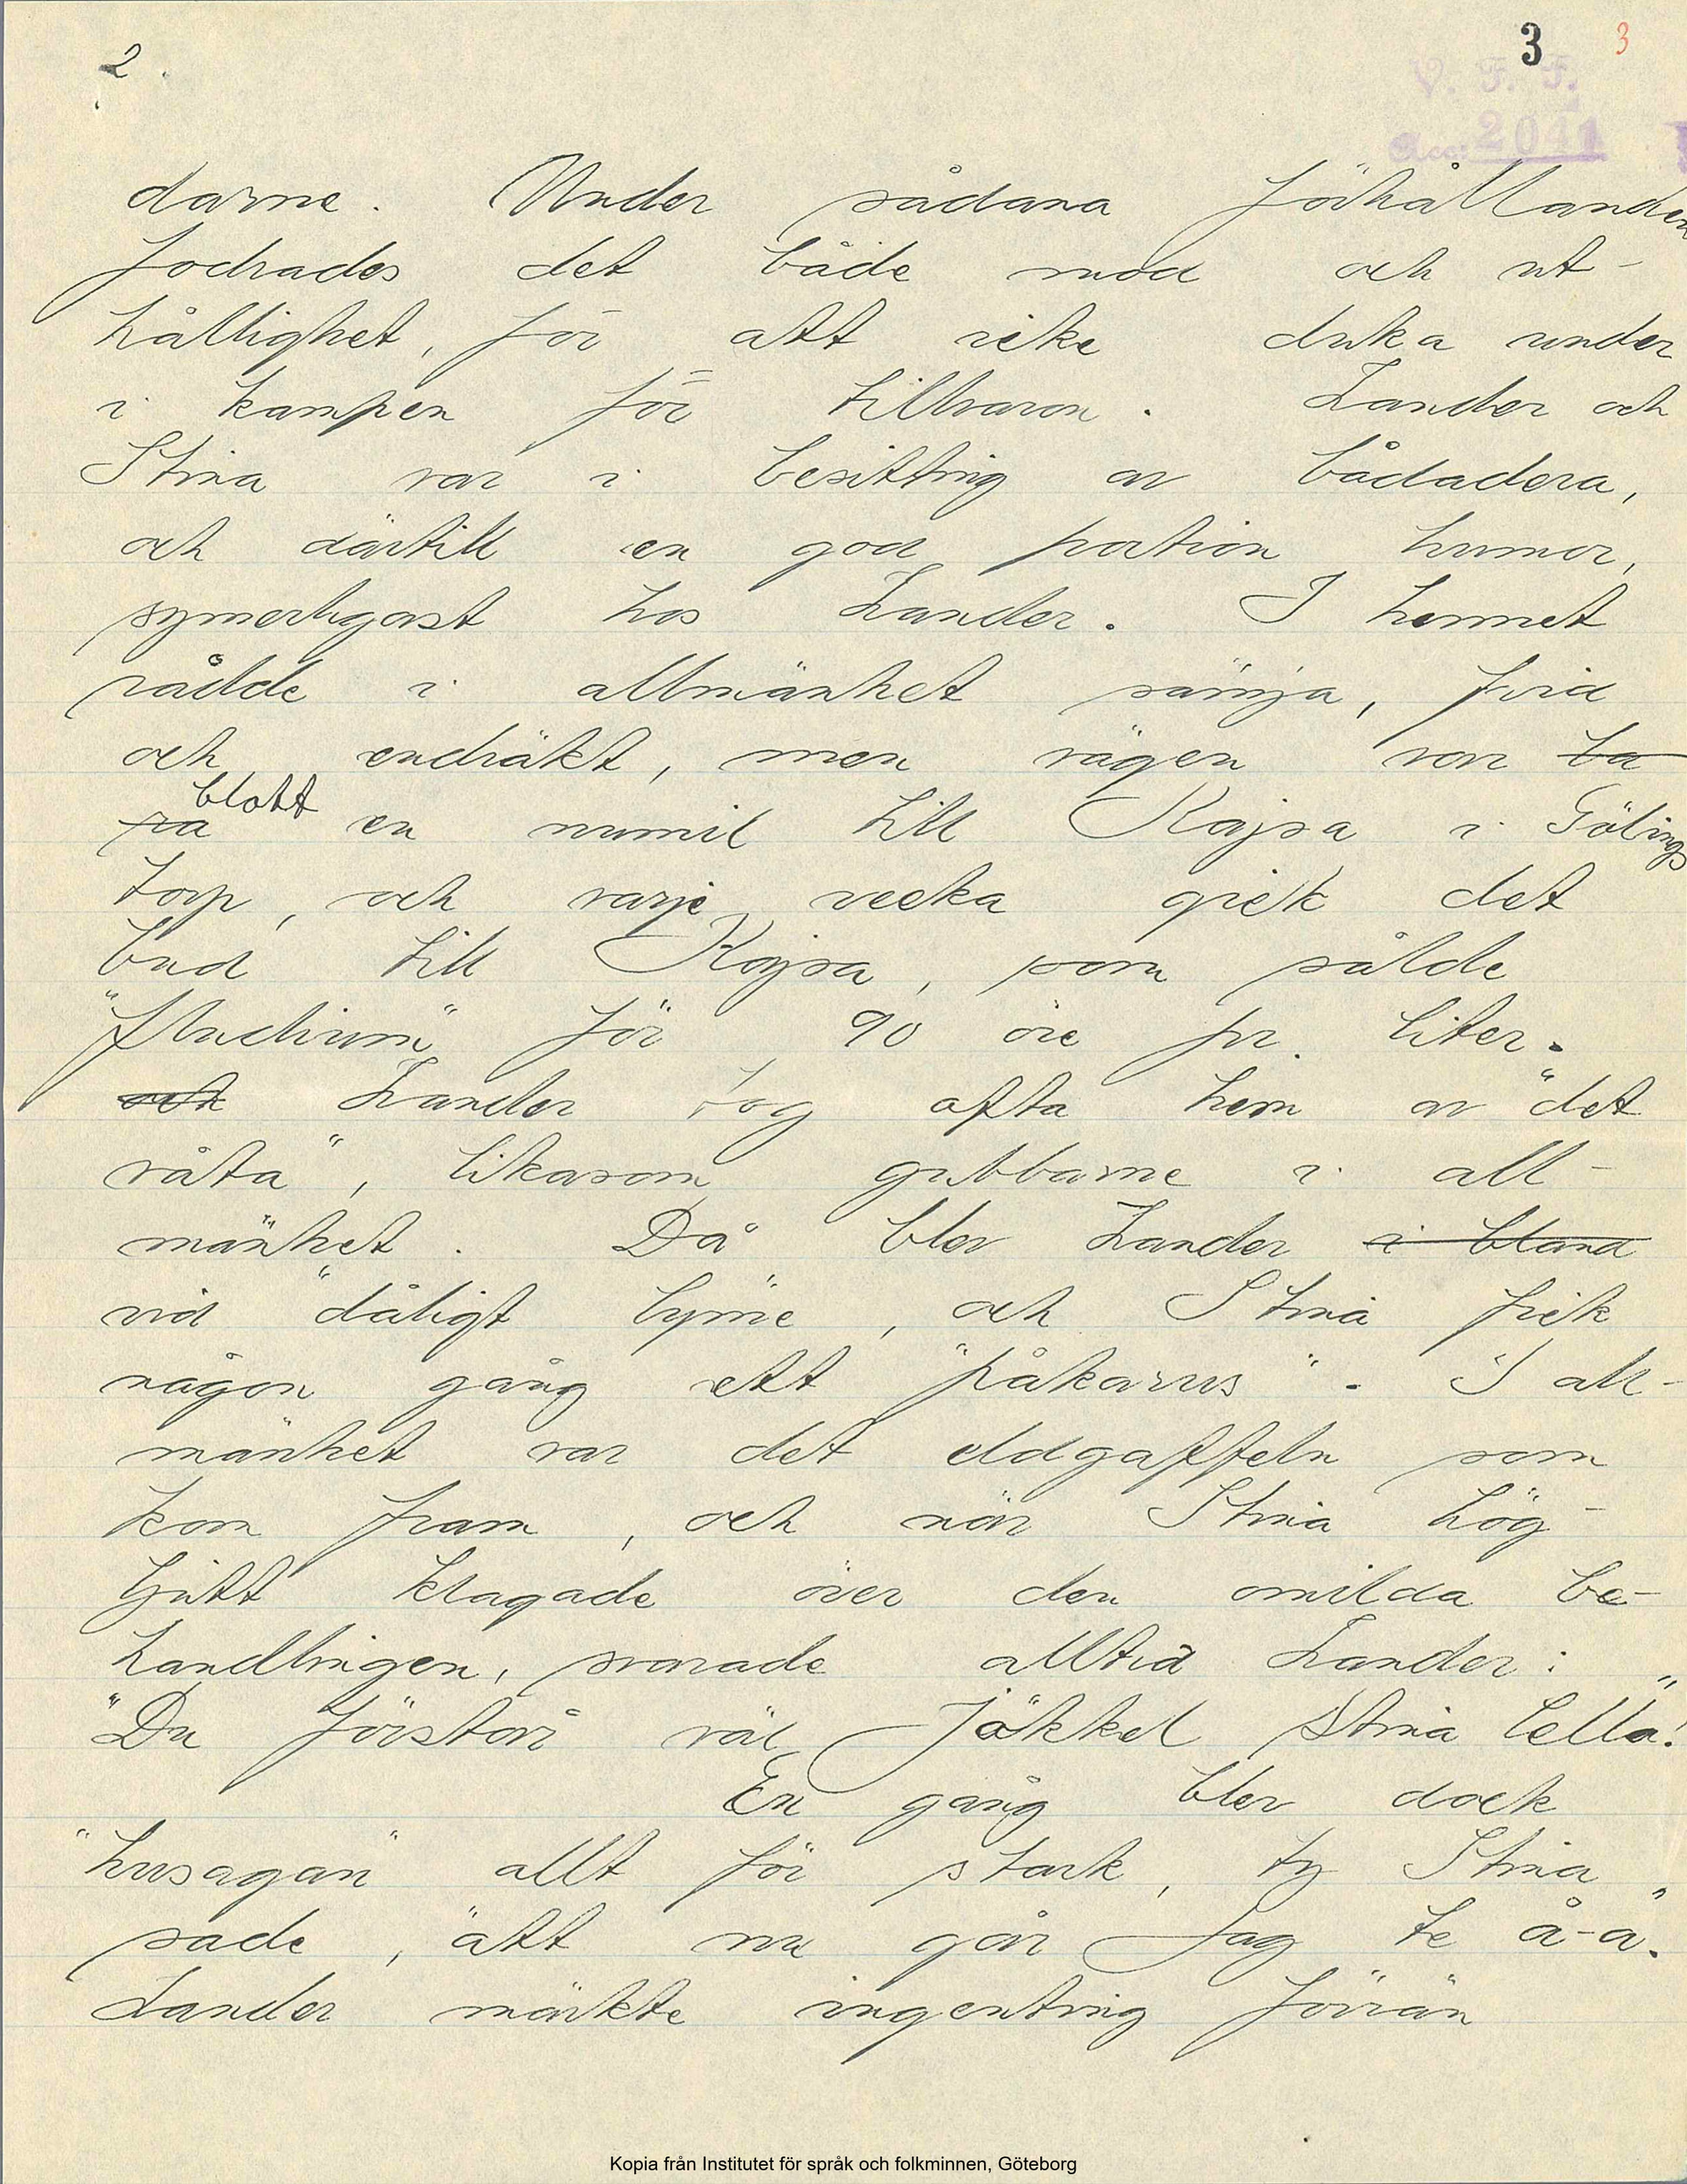 2.
3 3
V. F. F.
Acc: 2041
darne. Under sådana förhållanden
fodrades det både mod och ut-
hållighet, för att icke duka under
i kampen för tillvaron. Lander och
Stina var i besittnig av bådadera,
och därtill en god portion humor,
synnerligast hos Lander. I hemmet
rådde i allmänhet sämja, frid
och endräkt, men vägen var ba
ra blott en nymil till Kajsa i Gölings
torp, och varje vecka gick det
bud till Kajsa, som sålde
"fludium" för 90 öre pr. liter.
och Lander tog ofta hem av "det
våta", likasom gubbarne i all-
mänhet. Då blev Lander i bland
vid "dåligt lynne", och Stina fick
någon gång ett "påkarus". I all-
mänhet var det eldgaffeln som
kom fram, och när Stina hög-
ljutt klagade över den omilda be-
handlingen, svarade alltid Lander:
"Du förstår väl jäkkel Stina lella!"
En gång blev dock
"husagan" allt för stark, ty Stina
sade, "att nu går jag te å-a".
Lander märkte ingenting förrän
Kopia från Institutet för språk och folkminnen, Göteborg